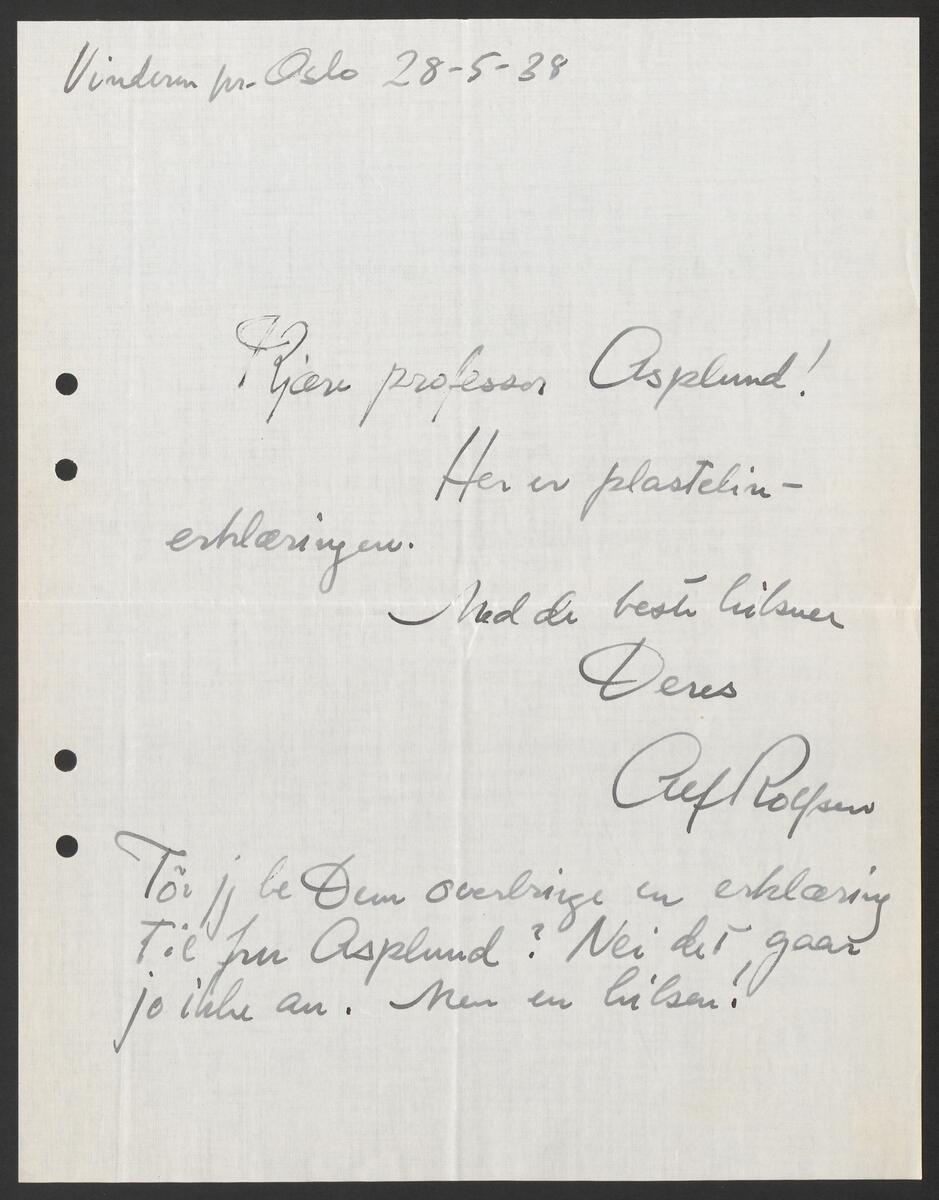 Vinderen pr. Oslo 28-5-38
Kjære professor Asplund!
Her er plastelin-
erklæringen.
Med de beste hilsner
Deres
Alf Rolfsen
Tör jg be Dem overbringe en erklæring
til fru Asplund? Nei det gaar
jo ikke an. Men en hilsen!